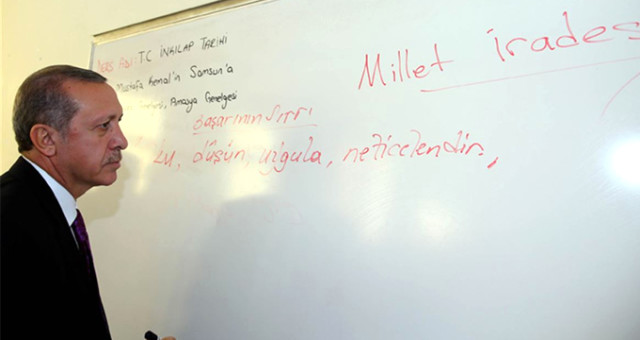 DERS ADI: T.C İNKILAP TARİHİ
Mustafa Kemal'in Samsun'a
Amasya Genelgesi
Başarının Sırrı
düşün, uygula, neticelendir.,
Millet İrades